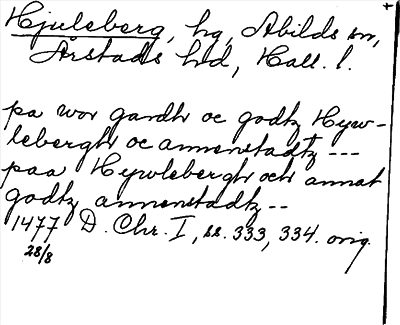 Hjuleberg, hg, Abilds sn,
Årstads hd, Hall. l.
pa wor gardh oc godtz Hyw-
lebergh oc annenstadtz ---
paa Hywlebergh och annat
godtz annenstadtz --
1477 D. Chr. I, ss. 333, 334. orig.
28/8